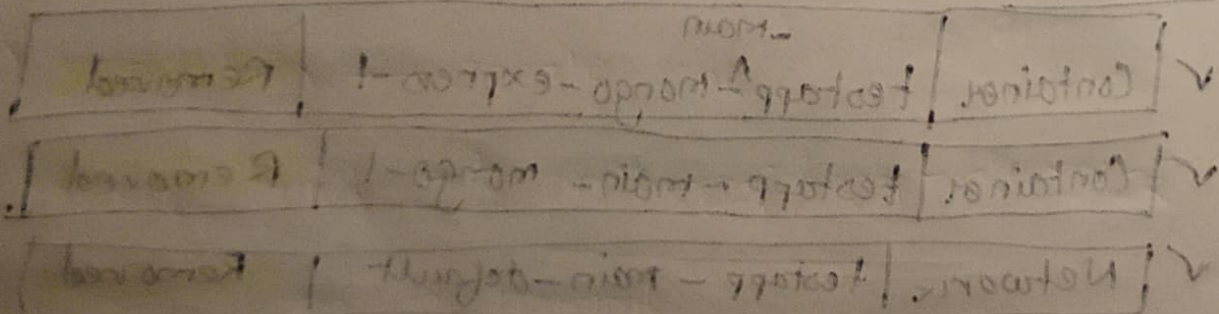 ✓ Container testapp-main-mongo-express-1 Removed
✓ Container testapp-main-mongo-1 Removed
✓ Network testapp-main-default Removed